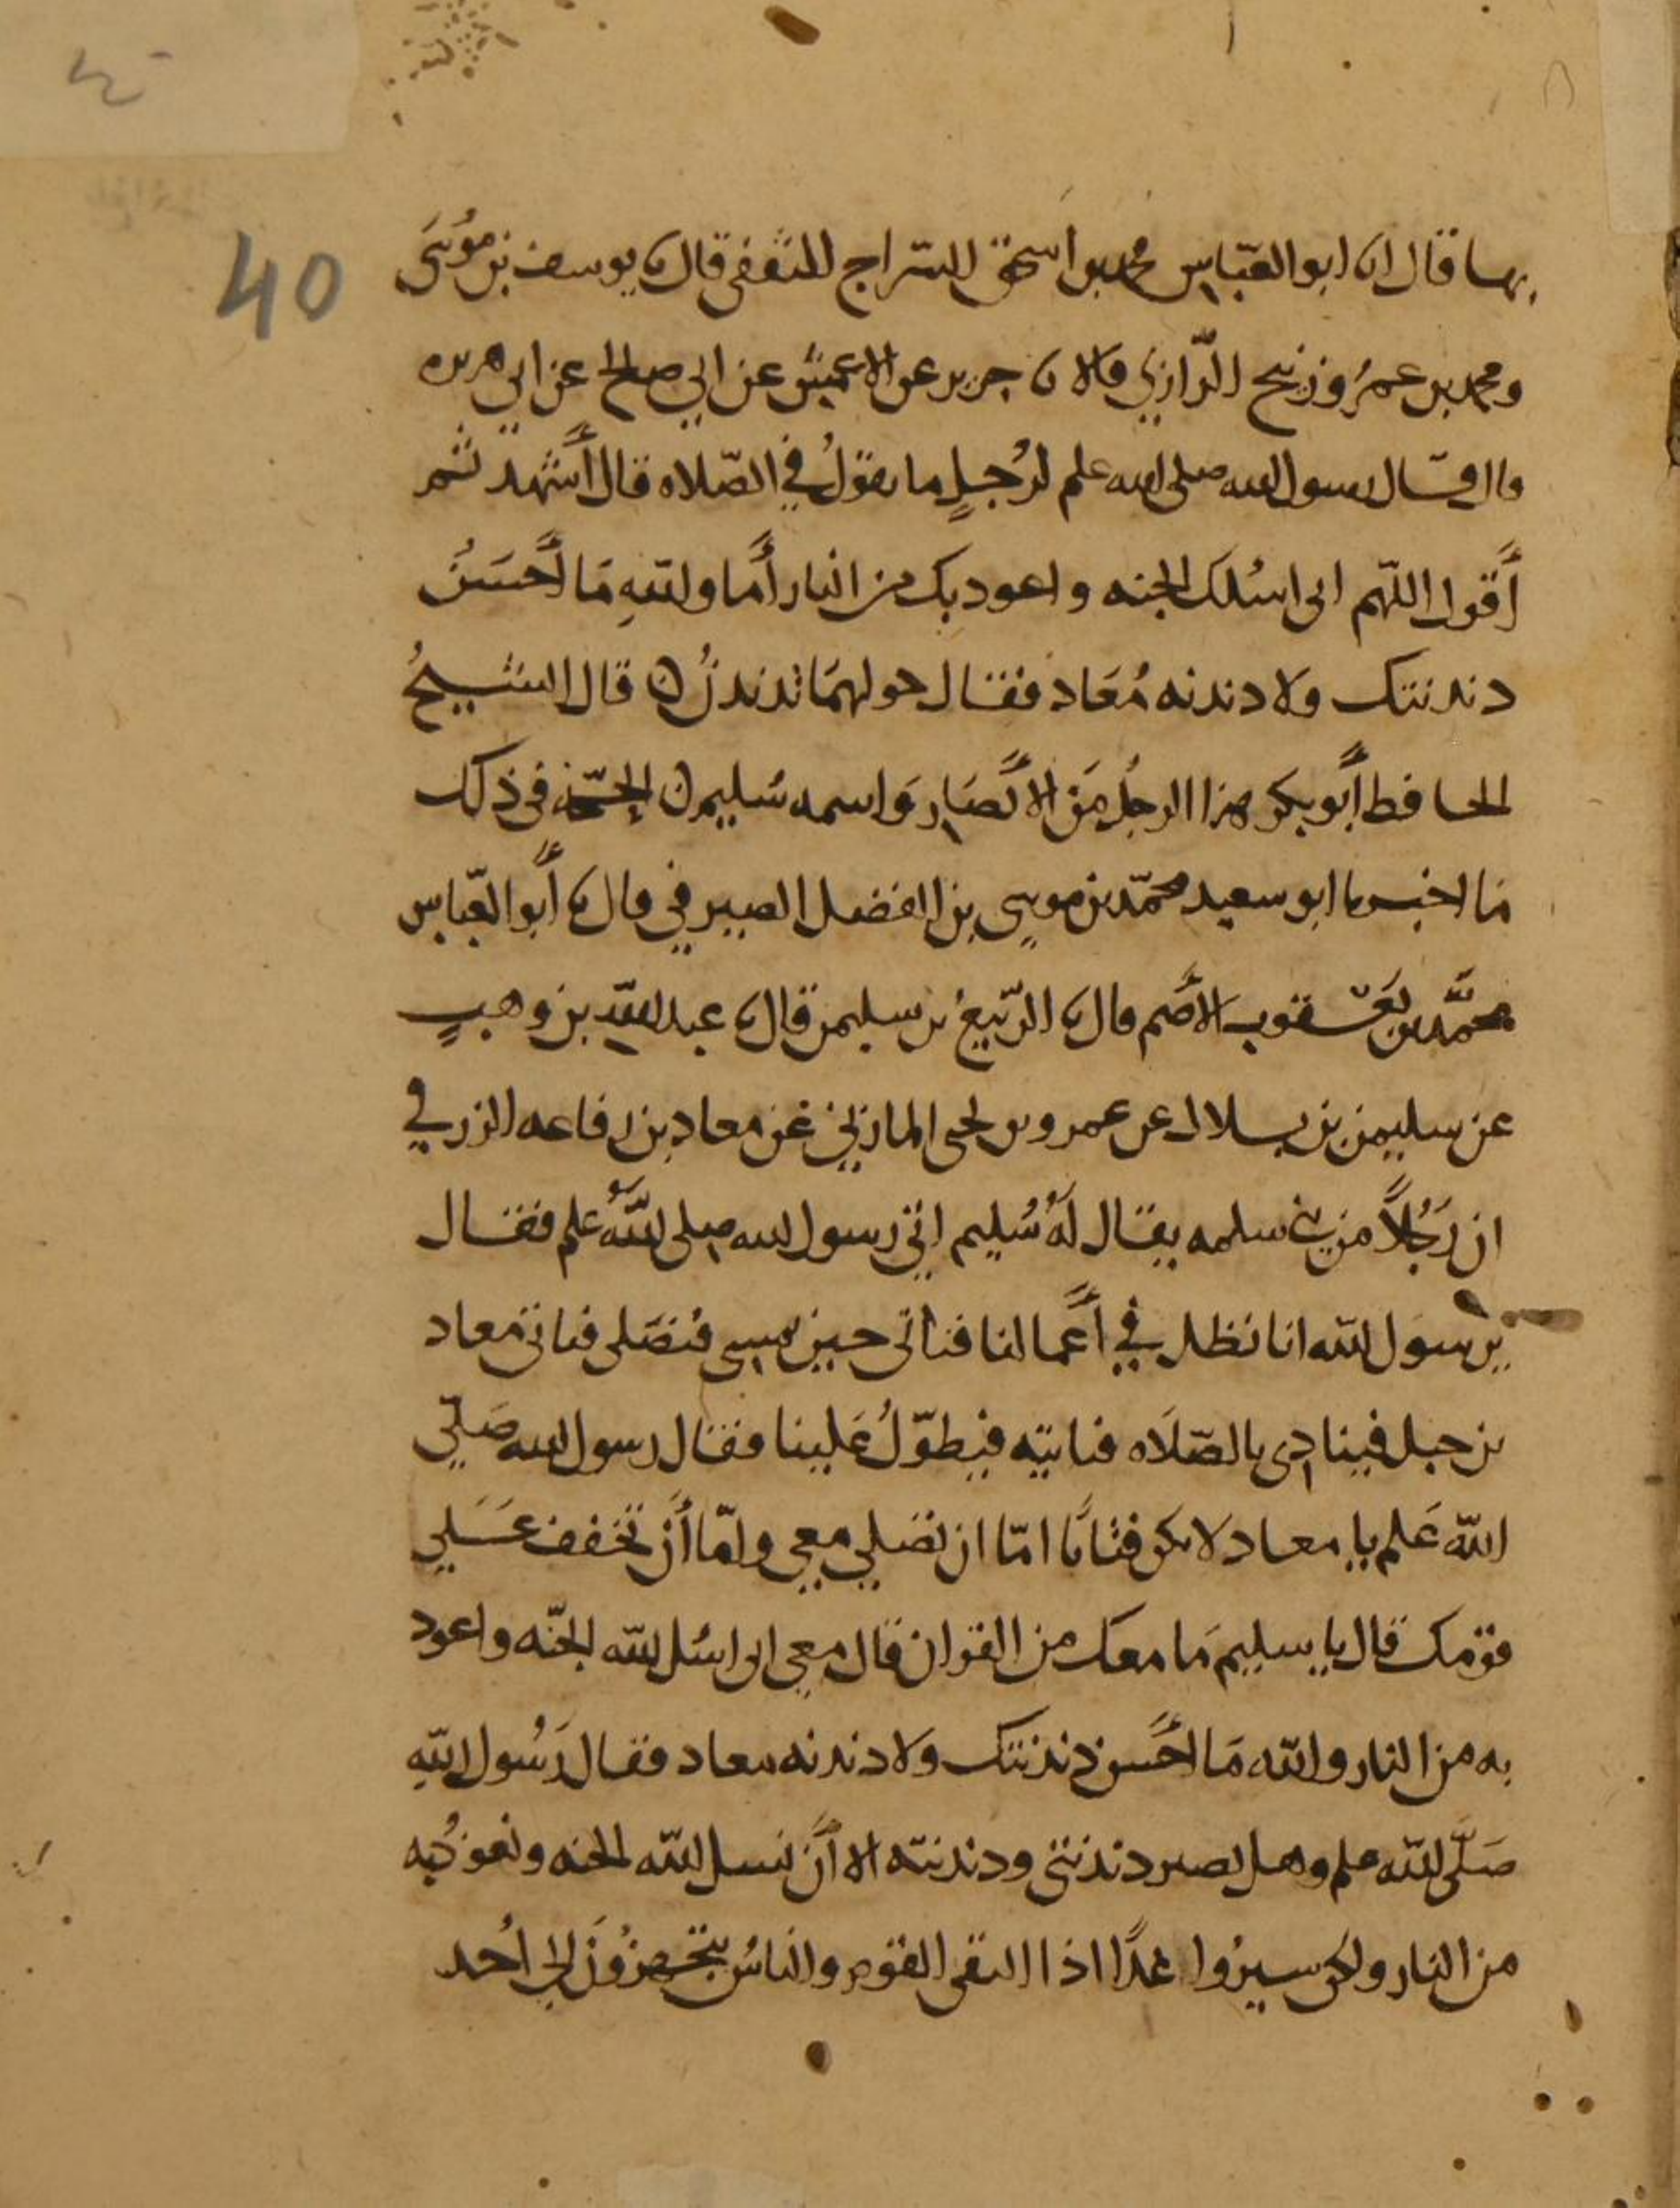 40
بها قال انا ابو العبّاس محمد بن اسحق السّراج الثقفى قال نا يوسف بن مُوسَى
ومحمد بن عمرو زنيح الرّازي قالا نا جرير عن الاعمش عن ابي صالح عن ابي هريره
قال قال رسول الله صلى الله علىه وسلم لرُجلٍ ما تقولُ في الصّلاه قال أشهد ثم
أَقول اللّهم انى اسُلك الجنه واعود بك من النار أَما والله مَا أَحسَنُ
دندنتك ولا دندنه مُعَاد فقال حولهمَا ندندنُ ه قال الشيخُ
الحافط أَبو بكر هذا الرجُل مَن الأَنصَار وَاسمه سُليم ه الحجّه فى ذلك
مَا اخبرنا ابو سعيد محمّد بن موسى بن الفضل الصيرفي قال نا أَبو العبّاس
محمَّد بن يَعقوب الأَصم قال نا الرّبيعُ بن سليمن قال نا عبد الله بن وهبٍ
عن سليمن بن بلال عن عمرو بن يحيى المازني عن معاد بن رفاعه الزرقي
ان رَجُلاً من بني سلمه يقال لَهُ سُليم اتى رسول الله صلى اللهُ علىه وسلم فقال
يرسول الله انا نظل في أَعمالنا فناتى حين نمسى فنصَلى فياتى معاد
بن جبل فينادى بالصّلَاه فناتيه فيطوّلُ عَلينا فقال رسول الله صَلّى
الله عَلىه وسلم يا معاد لا تكن فتانًا امّا ان تصَلي معي وامّا أَن تخفف عَلي
قومك قال يا سليم مَا معك من القران قال معي انى اسُل الله الجنّه واعود
به من النار والله مَا احَسن دندنتك ولا دندنه معاد فقال رَسُول الله
صَلَّى الله علىه وسلم وهل تصير دندنتي ودندنته الا أَن نسل الله الجنه ونعوذُ به
من النار ولكن سيرُوا غدًا اذا التقى القوم والناسُ يتجهزُونَ الى اُحد